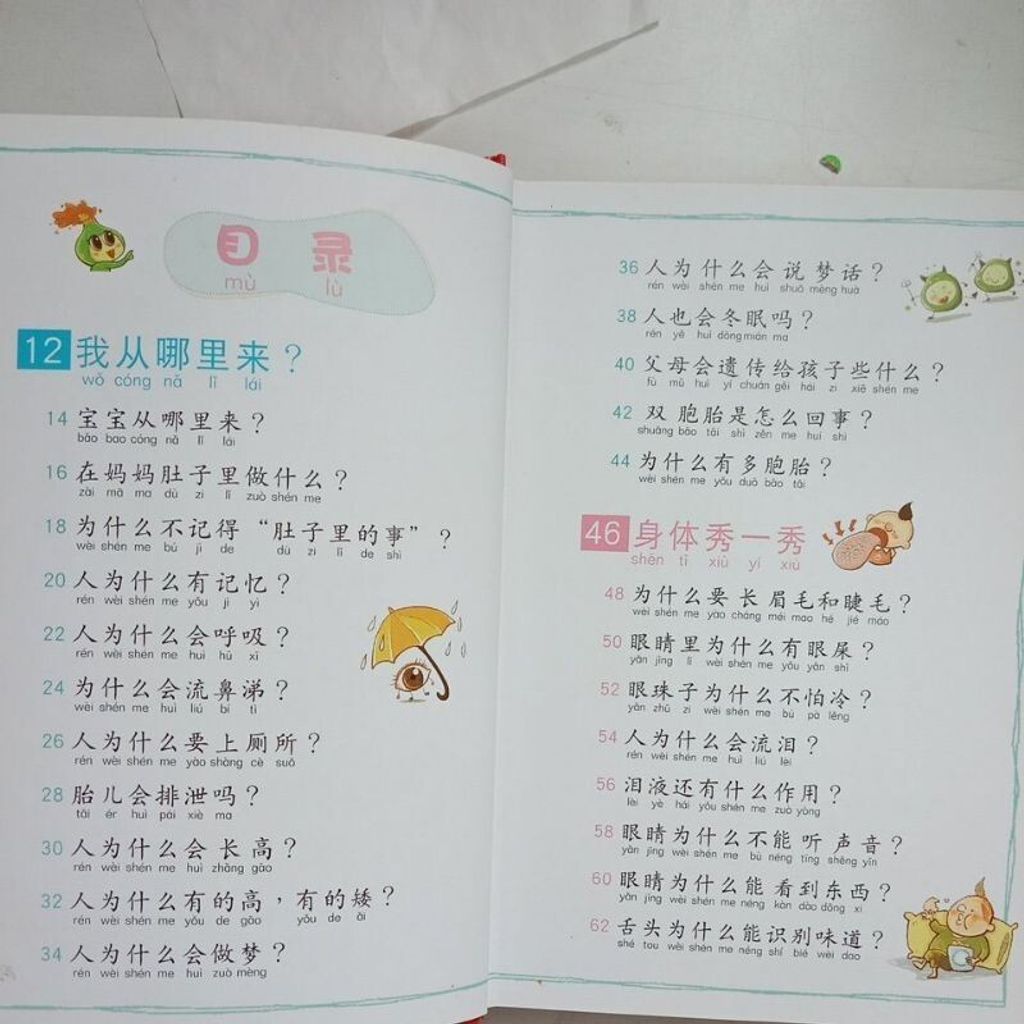 目 录
mù lù
12 我从哪里来？
wǒ cóng nǎ lǐ lái
14 宝宝从哪里来？
bǎo bao cóng nǎ lǐ lái
16 在妈妈肚子里做什么？
zài mā ma dù zi lǐ zuò shén me
18 为什么不记得“肚子里的事”？
wèi shén me bú jì de dù zi lǐ de shì
20 人为什么有记忆？
rén wèi shén me yǒu jì yì
22 人为什么会呼吸？
rén wèi shén me huì hū xī
24 为什么会流鼻涕？
wèi shén me huì liú bí tì
26 人为什么要上厕所？
rén wèi shén me yào shàng cè suǒ
28 胎儿会排泄吗？
tāi ér huì pái xiè ma
30 人为什么会长高？
rén wèi shén me huì zhǎng gāo
32 人为什么有的高，有的矮？
rén wèi shén me yǒu de gāo yǒu de ǎi
34 人为什么会做梦？
rén wèi shén me huì zuò mèng
36 人为什么会说梦话？
rén wèi shén me huì shuō mèng huà
38 人也会冬眠吗？
rén yě huì dōng mián ma
40 父母会遗传给孩子些什么？
fù mǔ huì yí chuán gěi hái zi xiē shén me
42 双胞胎是怎么回事？
shuāng bāo tāi shì zěn me huí shì
44 为什么有多胞胎？
wèi shén me yǒu duō bāo tāi
46 身体秀一秀
shēn tǐ xiù yí xiù
48 为什么要长眉毛和睫毛？
wèi shén me yào zhǎng méi mao hé jié máo
50 眼睛里为什么有眼屎？
yǎn jing lǐ wèi shén me yǒu yǎn shǐ
52 眼珠子为什么不怕冷？
yǎn zhū zi wèi shén me bú pà lěng
54 人为什么会流泪？
rén wèi shén me huì liú lèi
56 泪液还有什么作用？
lèi yè hái yǒu shén me zuò yòng
58 眼睛为什么不能听声音？
yǎn jing wèi shén me bù néng tīng shēng yīn
60 眼睛为什么能看到东西？
yǎn jing wèi shén me néng kàn dào dōng xi
62 舌头为什么能识别味道？
shé tou wèi shén me néng shí bié wèi dao